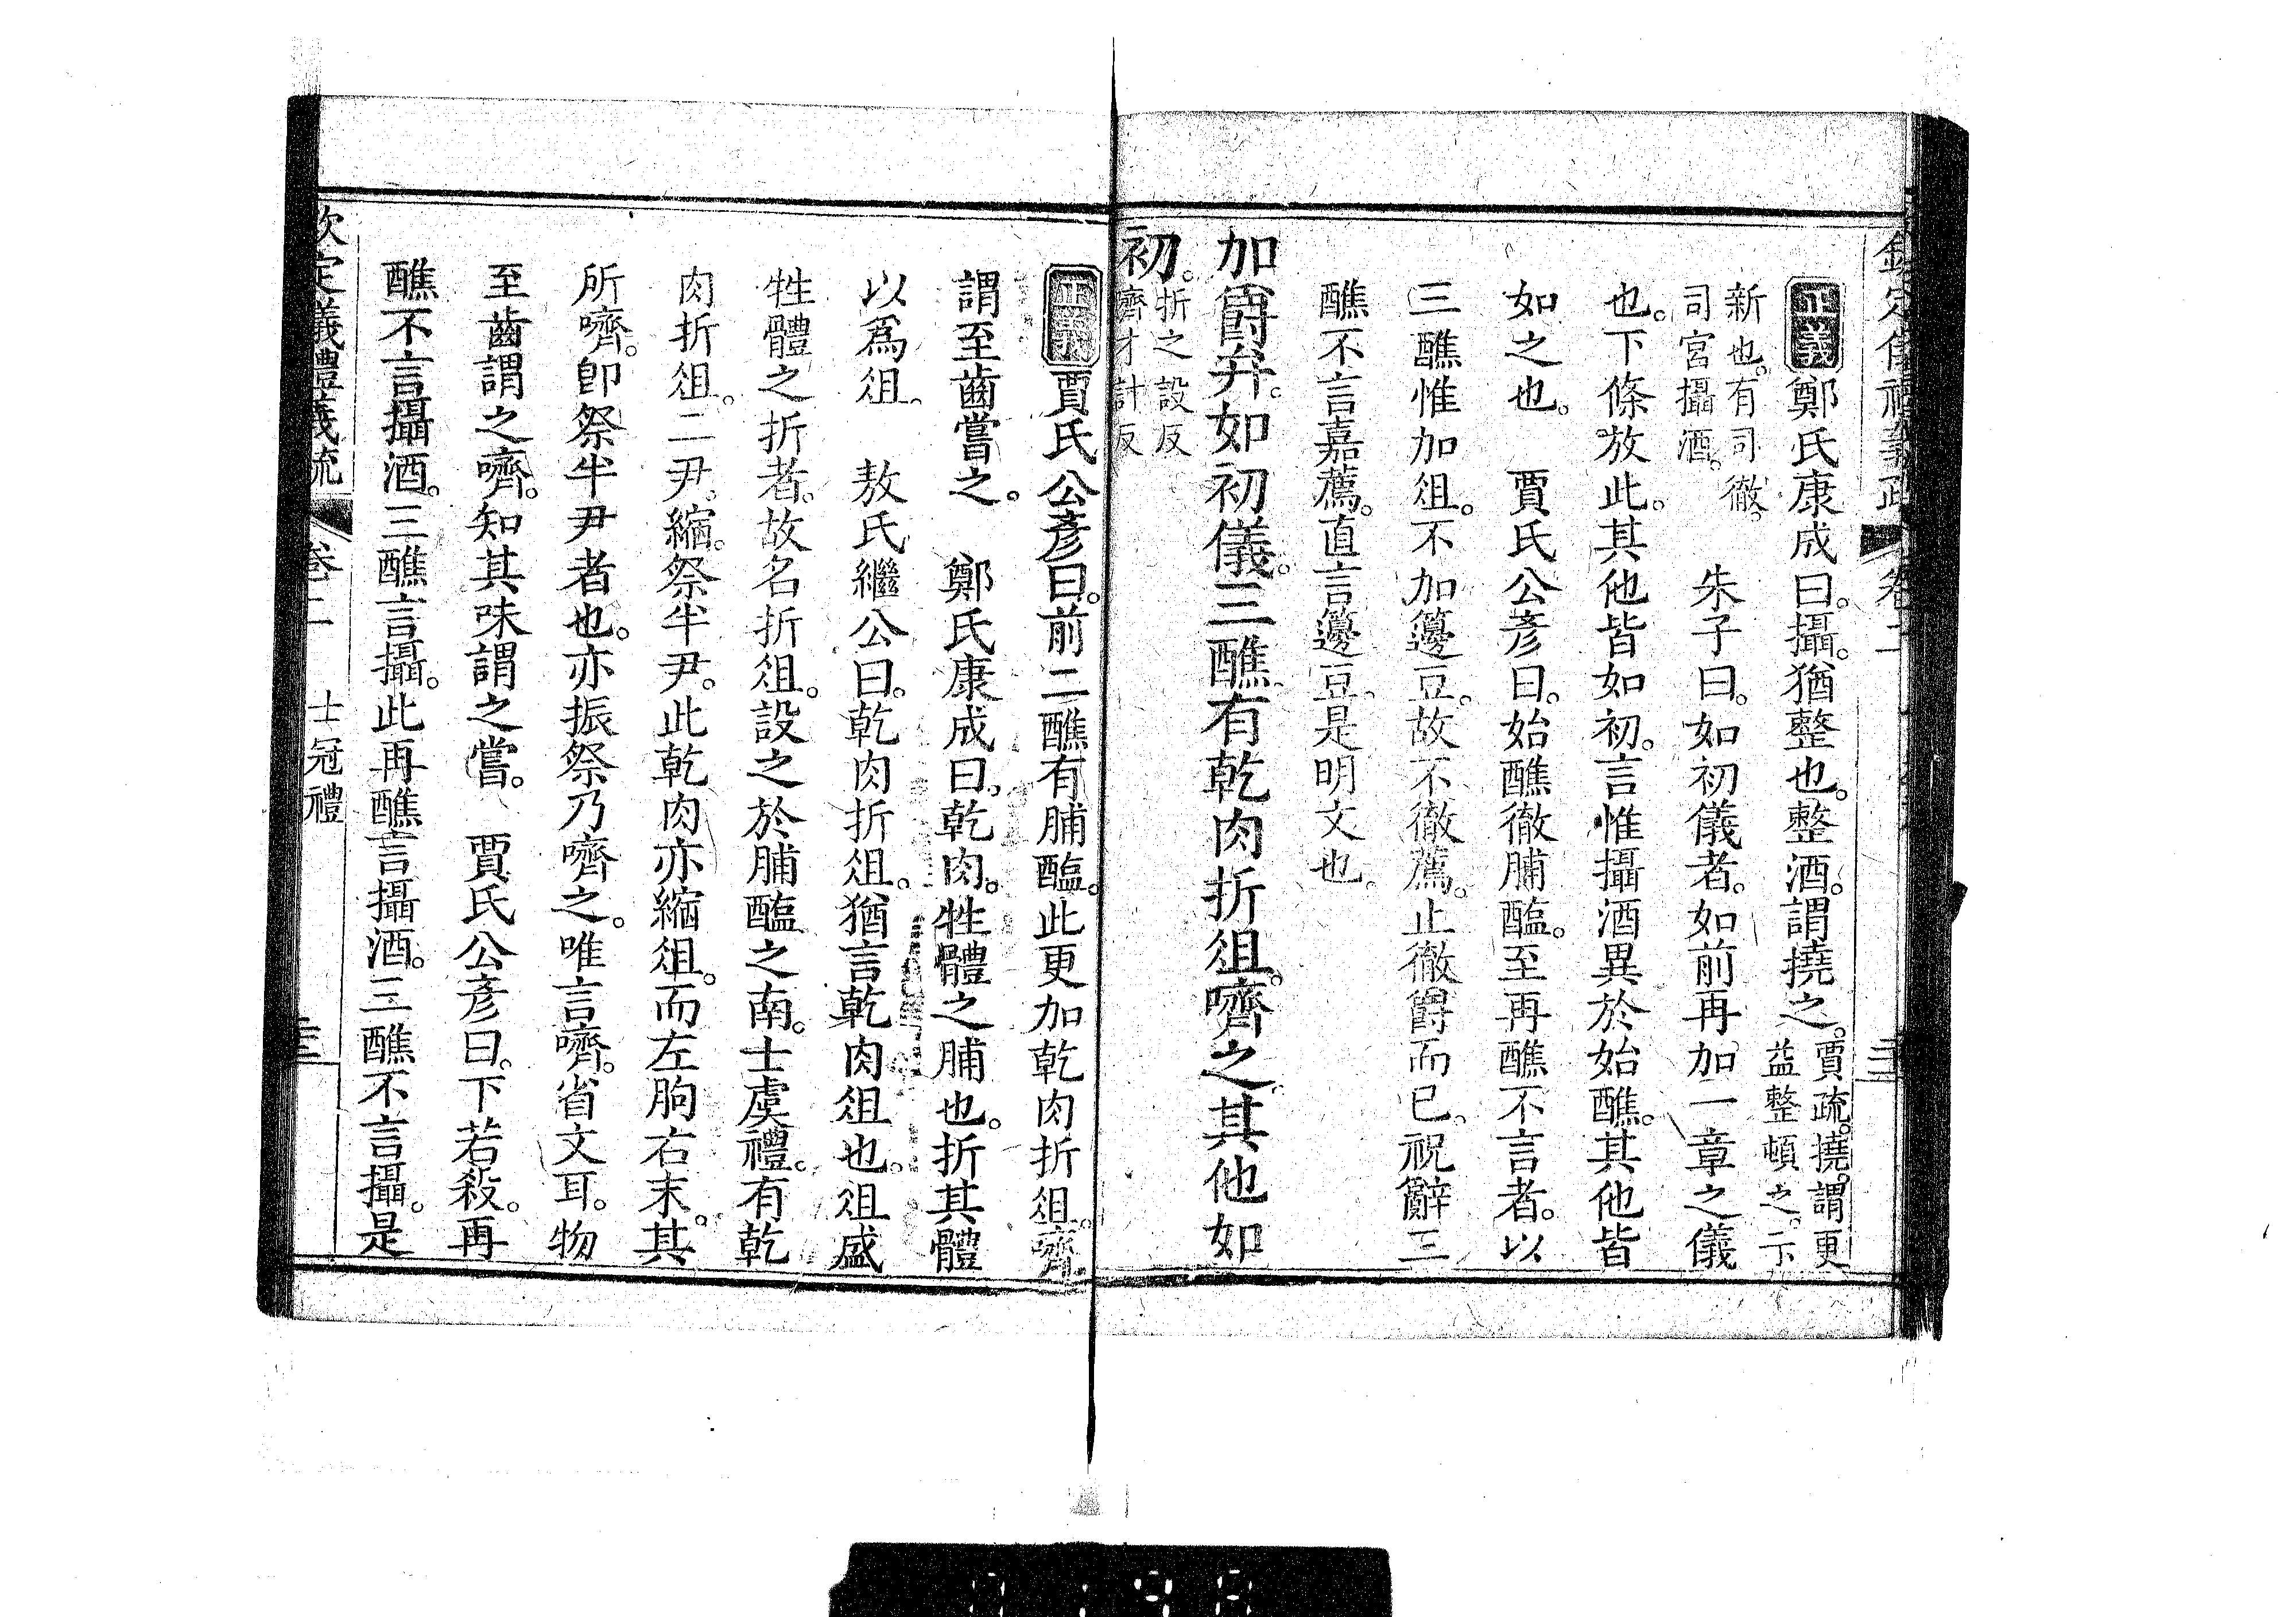 正義鄭氏康成曰。攝。猶整也。整酒。謂撓之。賈疏。撓。謂更
益整頓之。示
新也。有司徹。
司宮攝酒。 朱子曰。如初儀者。如前再加一章之儀
也。下條放此。其他皆如初。言惟攝酒異於始醮。其他皆
如之也。 賈氏公彥曰。始醮徹脯醢。至再醮不言者。以
三醮惟加俎。不加籩豆。故不徹薦。止徹爵而已。祝辭三
醮不言嘉薦。直言籩豆。是明文也。
加爵弁。如初儀。三醮。有乾肉折俎。嚌之。其他如
初。折之設反
嚌才計反
正義賈氏公彥曰。前二醮有脯醢。此更加乾肉折俎。嚌
謂至齒嘗之。 鄭氏康成曰。乾肉。牲體之脯也。折其體
以爲俎。 敖氏繼公曰。乾肉折俎。猶言乾肉俎也。俎盛
牲體之折者。故名折俎。設之於脯醢之南。士虞禮。有乾
肉折俎。二尹。縮。祭半尹。此乾肉亦縮俎。而左朐右末。其
所嚌。卽祭半尹者也。亦振祭乃嚌之。唯言嚌。省文耳。物
至齒謂之嚌。知其味謂之嘗。 賈氏公彥曰。下若殺。再
醮不言攝酒。三醮言攝。此再醮言攝酒。三醮不言攝。是
欽定儀禮義疏 卷二 士冠禮